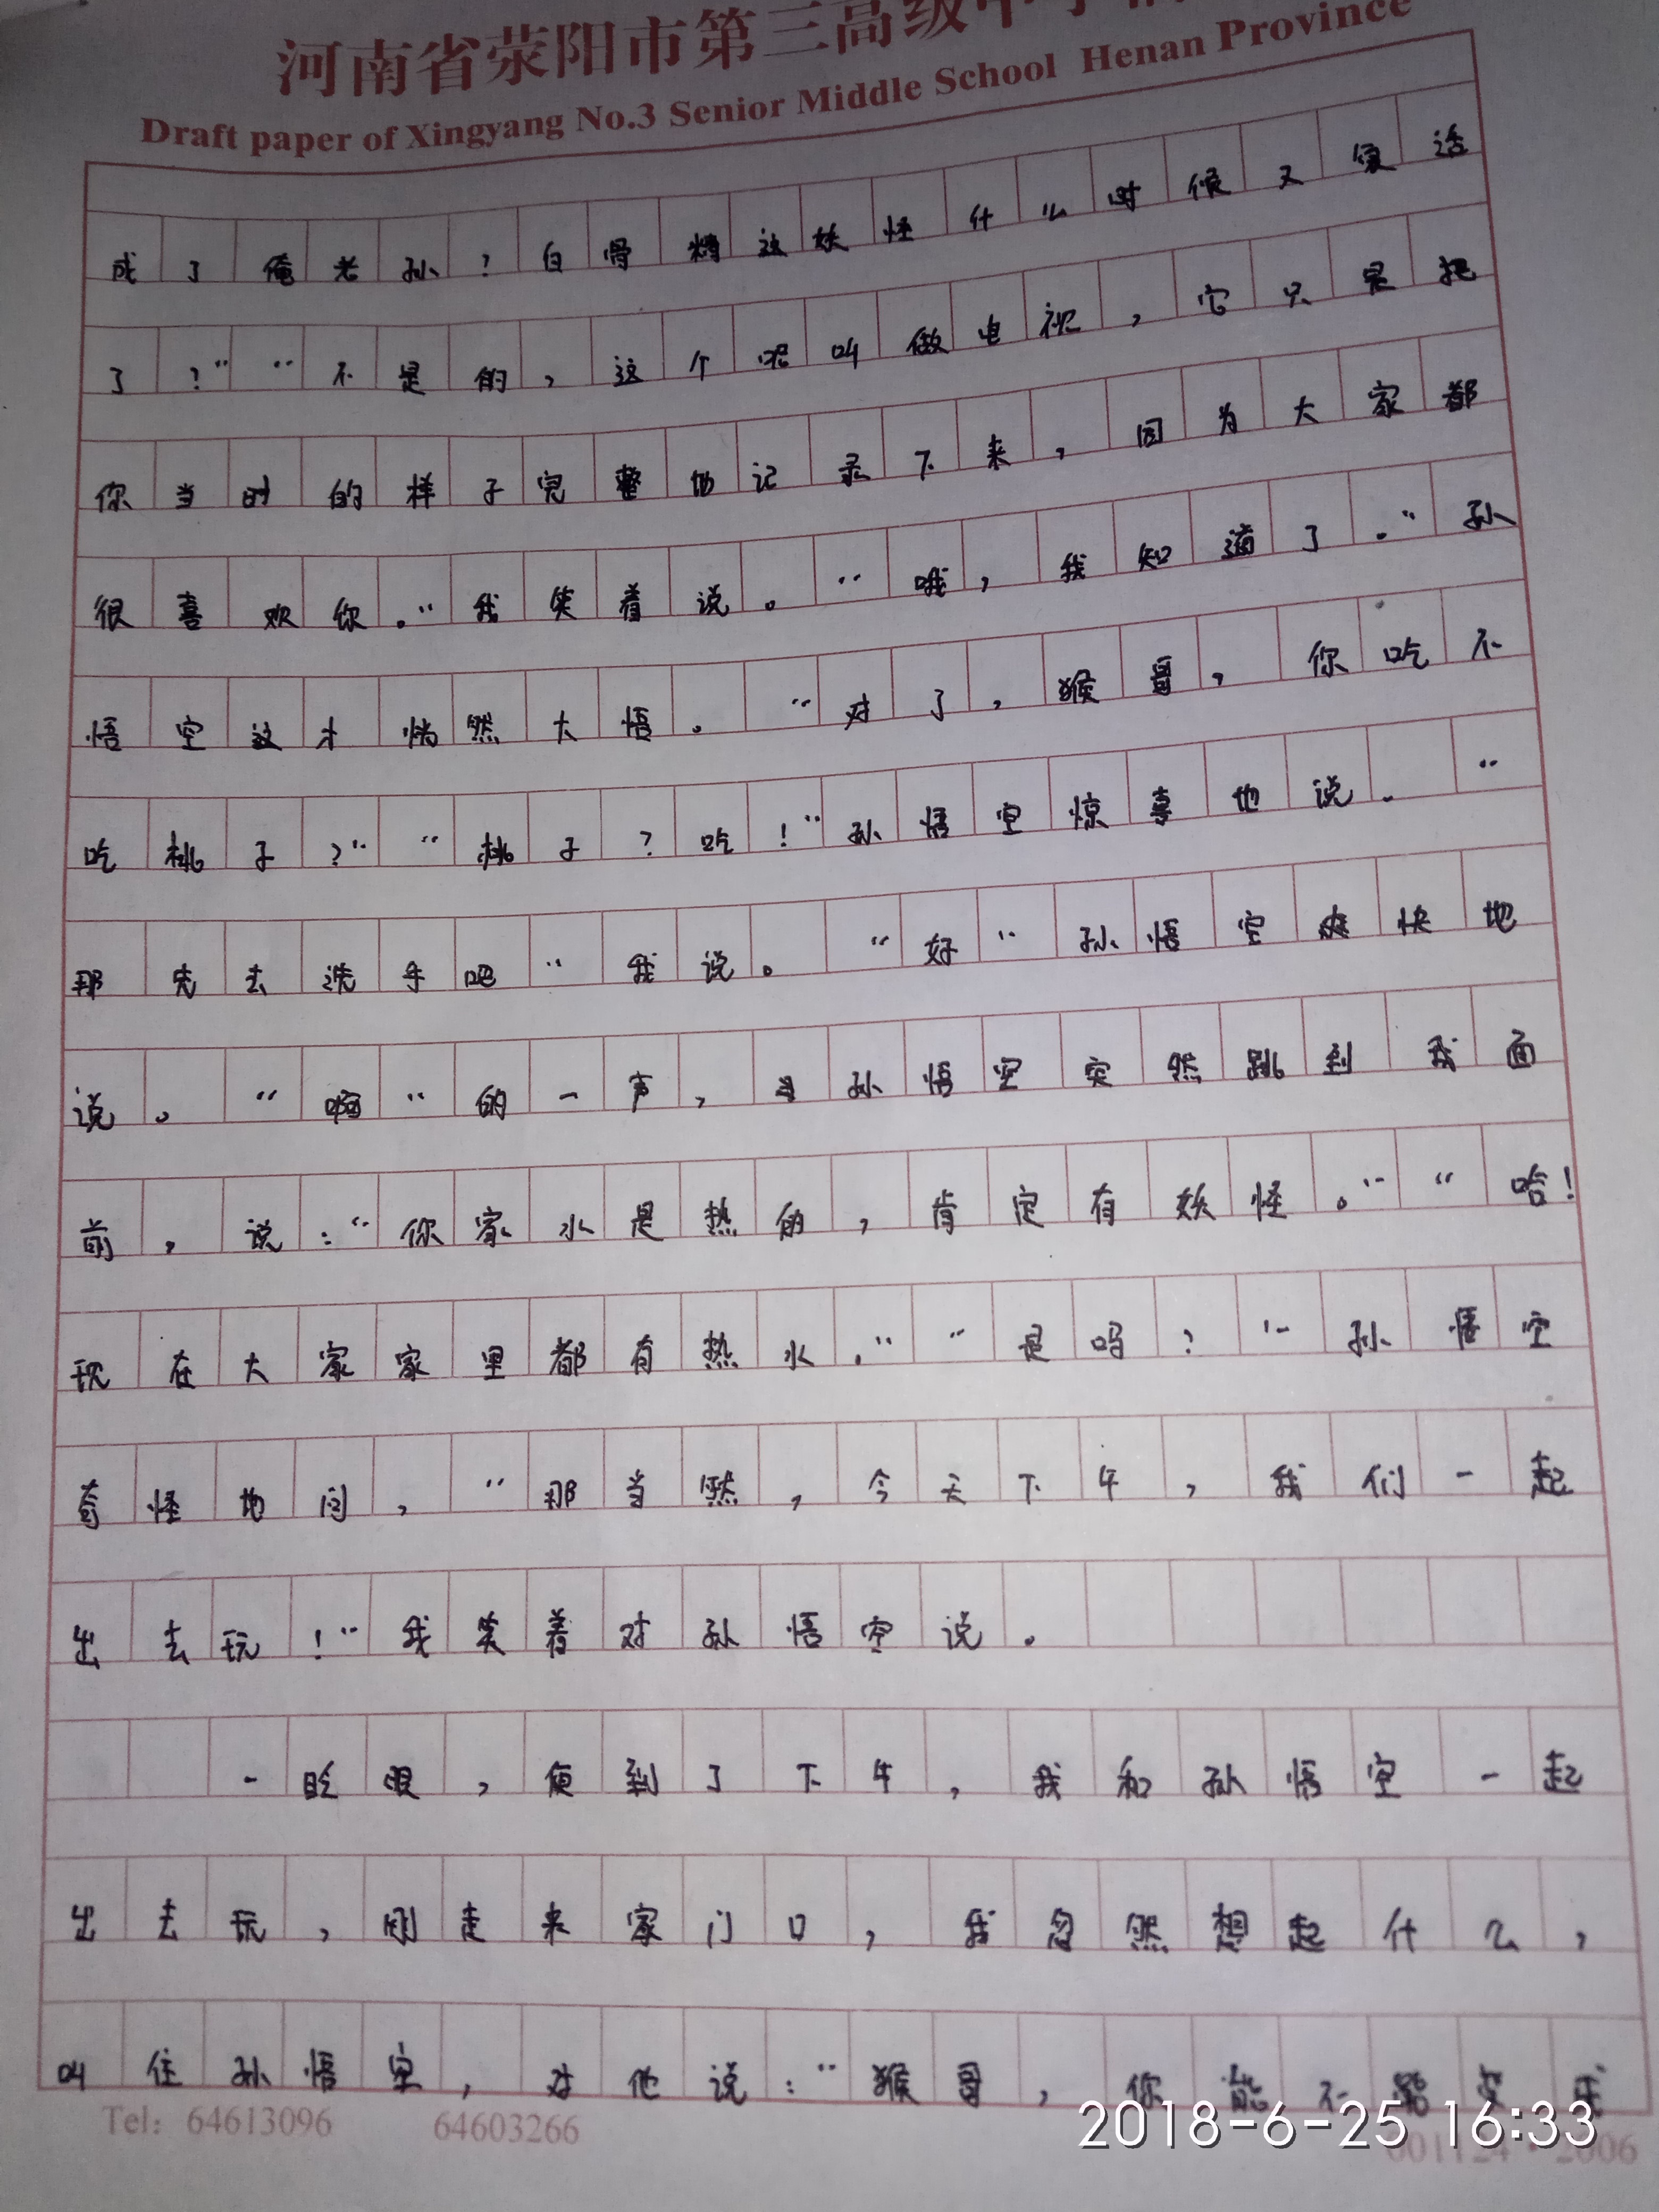 河南省荥阳市第三高级中学
Draft paper of Xingyang No.3 Senior Middle School Henan Province
成了俺老孙?白骨精这妖怪什么时候又复活
了?”“不是的,这个呢叫做电视,它只是把
你当时的样子完整地记录下来,因为大家都
很喜欢你。”我笑着说。“哦,我知道了。”孙
悟空这才恍然大悟。“对了,猴哥,你吃不
吃桃子?”“桃子?吃!”孙悟空惊喜地说。“
那先去洗手吧”我说。“好”孙悟空爽快地
说。“啊”的一声,当孙悟空突然跳到我面
前,说:“你家水是热的,肯定有妖怪。”“哈!
现在大家家里都有热水。”“是吗?”孙悟空
奇怪地问,“那当然,今天下午,我们一起
出去玩!”我笑着对孙悟空说。
一眨眼,便到了下午,我和孙悟空一起
出去玩,刚走来家门口,我忽然想起什么,
叫住孙悟空,对他说:“猴哥,你能不能变成
Tel: 64613096 64603266
2018-6-25 16:33